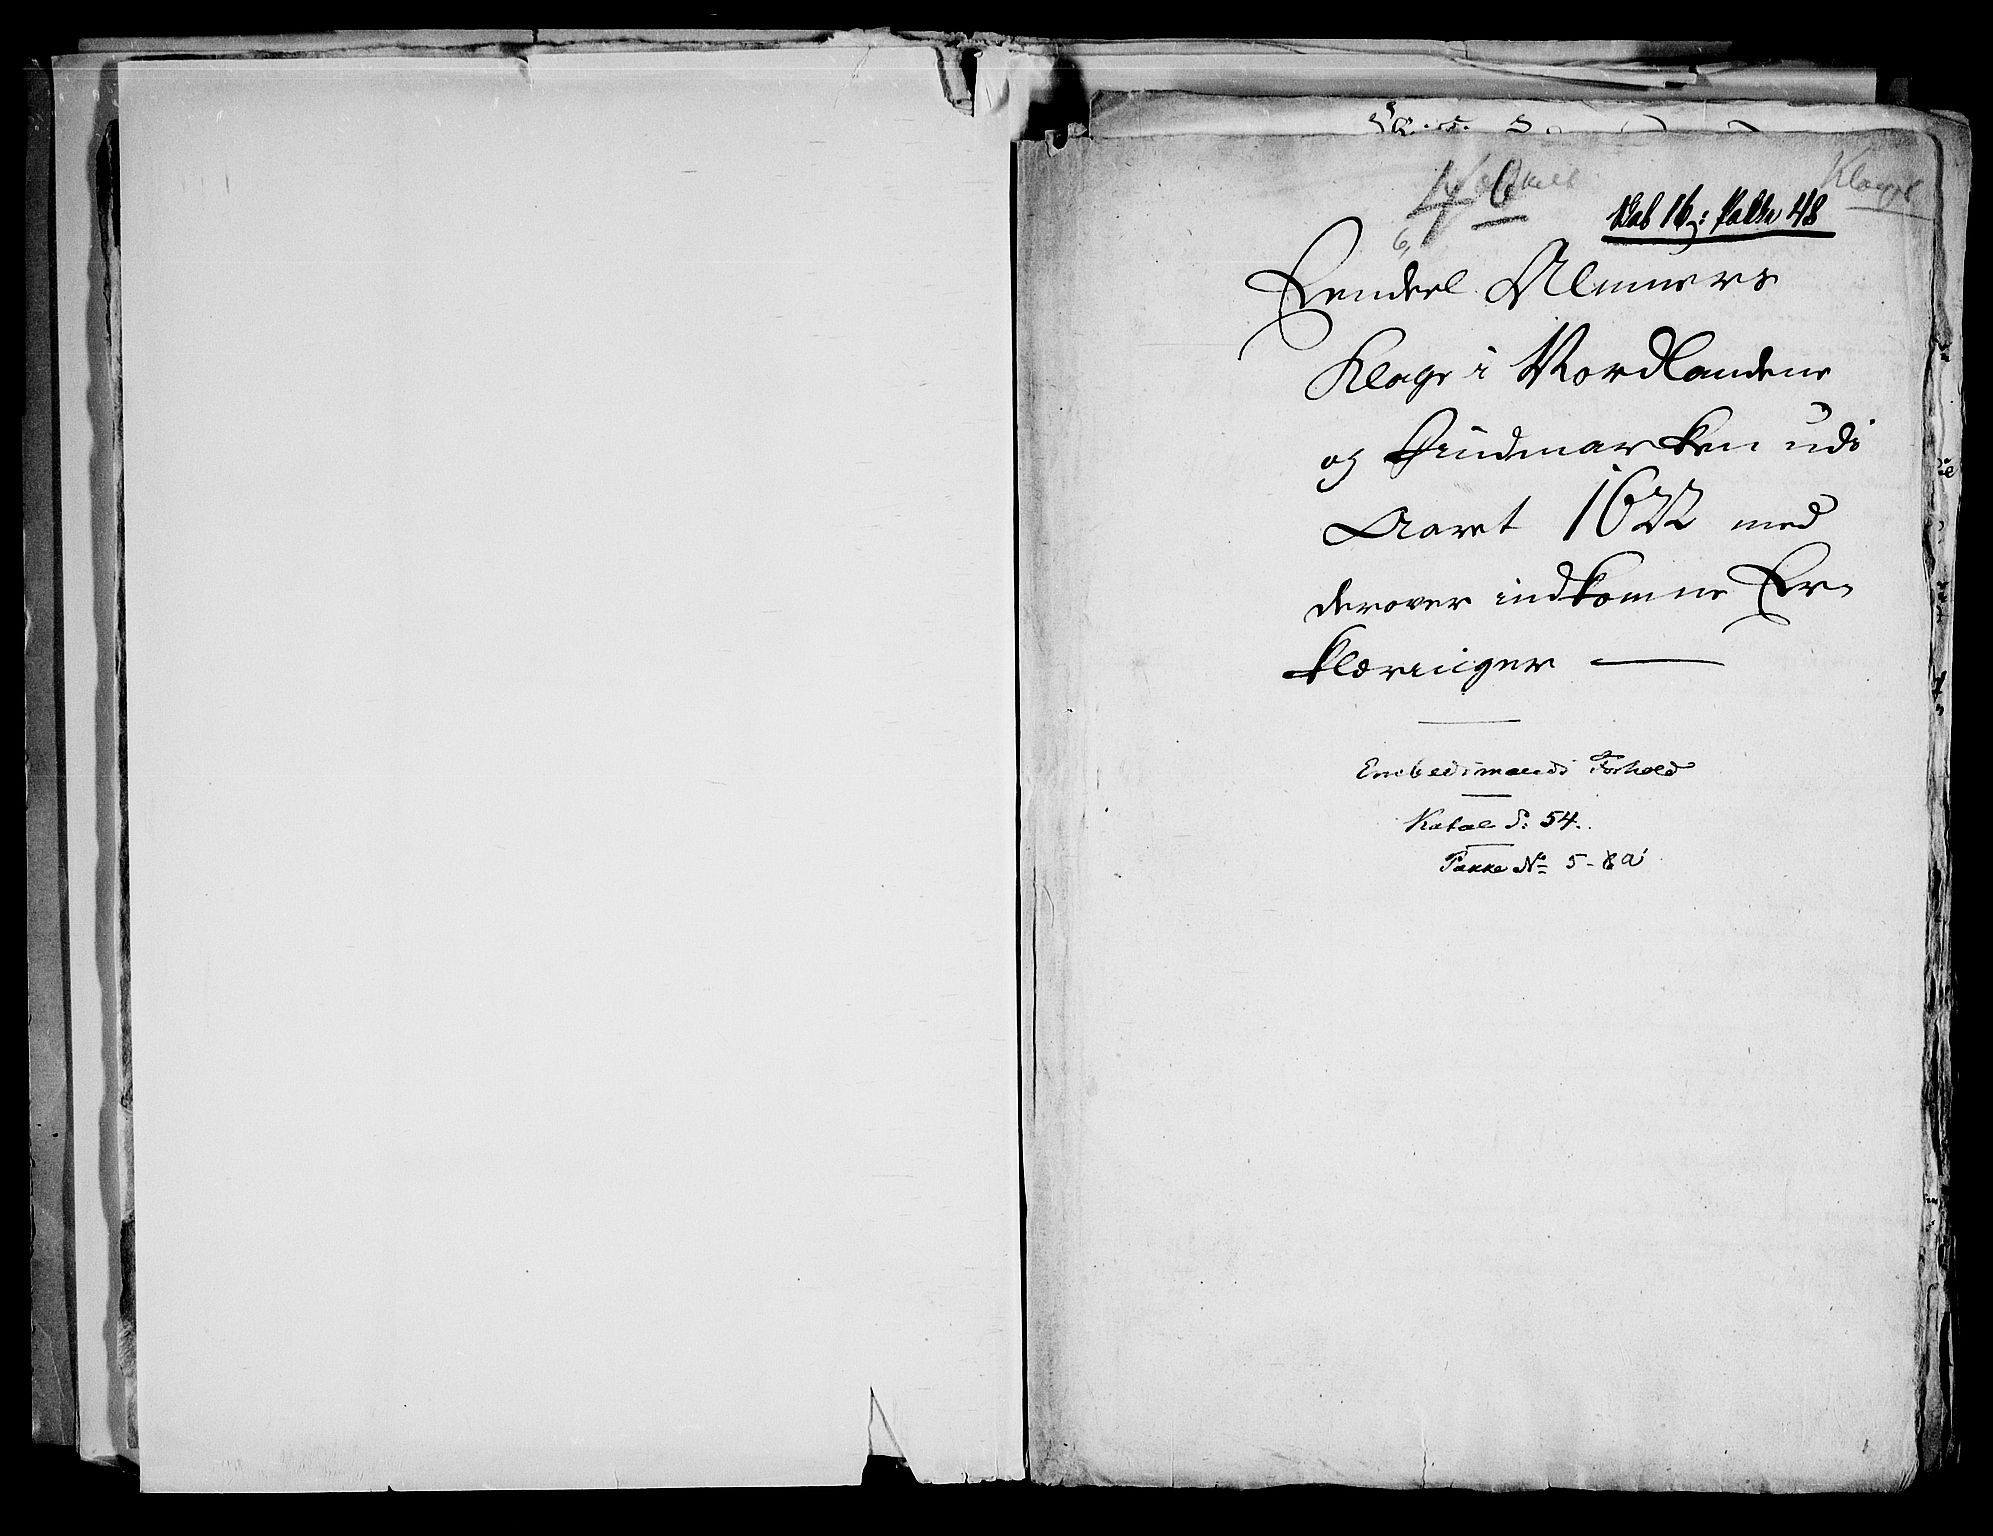 46
6,
Klage
Skab 16; Pakke 48
Eendeel Almuers
Klage i Nordlandene
og Findmarken udi
Aaret 1622 med
derover indkomne Er-
klæringer —
Embedsmænds Forhold
Katal S: 54.
Pakke No 5-8a